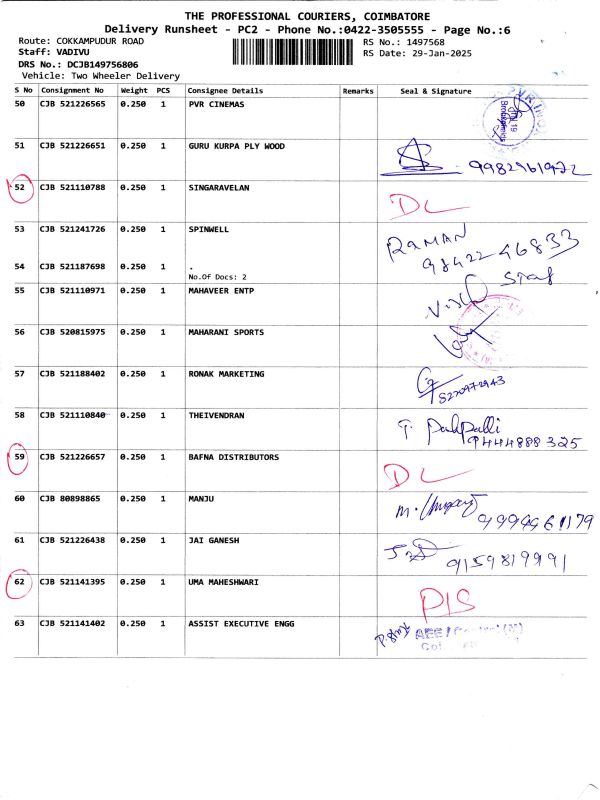 THE PROFESSIONAL COURIERS, COIMBATORE
Delivery Runsheet - PC2 - Phone No.:0422-3505555 - Page No.:6
Route: COKKAMPUDUR ROAD
RS No.: 1497568
Staff: VADIVU
RS Date: 29-Jan-2025
DRS No.: DCJB149756806
Vehicle: Two Wheeler Delivery
S No Consignment No Weight PCS Consignee Details Remarks Seal & Signature
50 CJB 521226565 0.250 1 PVR CINEMAS
51 CJB 521226651 0.250 1 GURU KURPA PLY WOOD 9982961972
52 CJB 521110788 0.250 1 SINGARAVELAN DL
53 CJB 521241726 0.250 1 SPINWELL RAMAN
98422 46833
54 CJB 521187698 0.250 1 .
No.Of Docs: 2
Staf
55 CJB 521110971 0.250 1 MAHAVEER ENTP
56 CJB 520815975 0.250 1 MAHARANI SPORTS
57 CJB 521188402 0.250 1 RONAK MARKETING
58 CJB 521110840 0.250 1 THEIVENDRAN
9444888325
59 CJB 521226657 0.250 1 BAFNA DISTRIBUTORS DL
60 CJB 80898865 0.250 1 MANJU
61 CJB 521226438 0.250 1 JAI GANESH 9159819991
62 CJB 521141395 0.250 1 UMA MAHESHWARI PIS
63 CJB 521141402 0.250 1 ASSIST EXECUTIVE ENGG